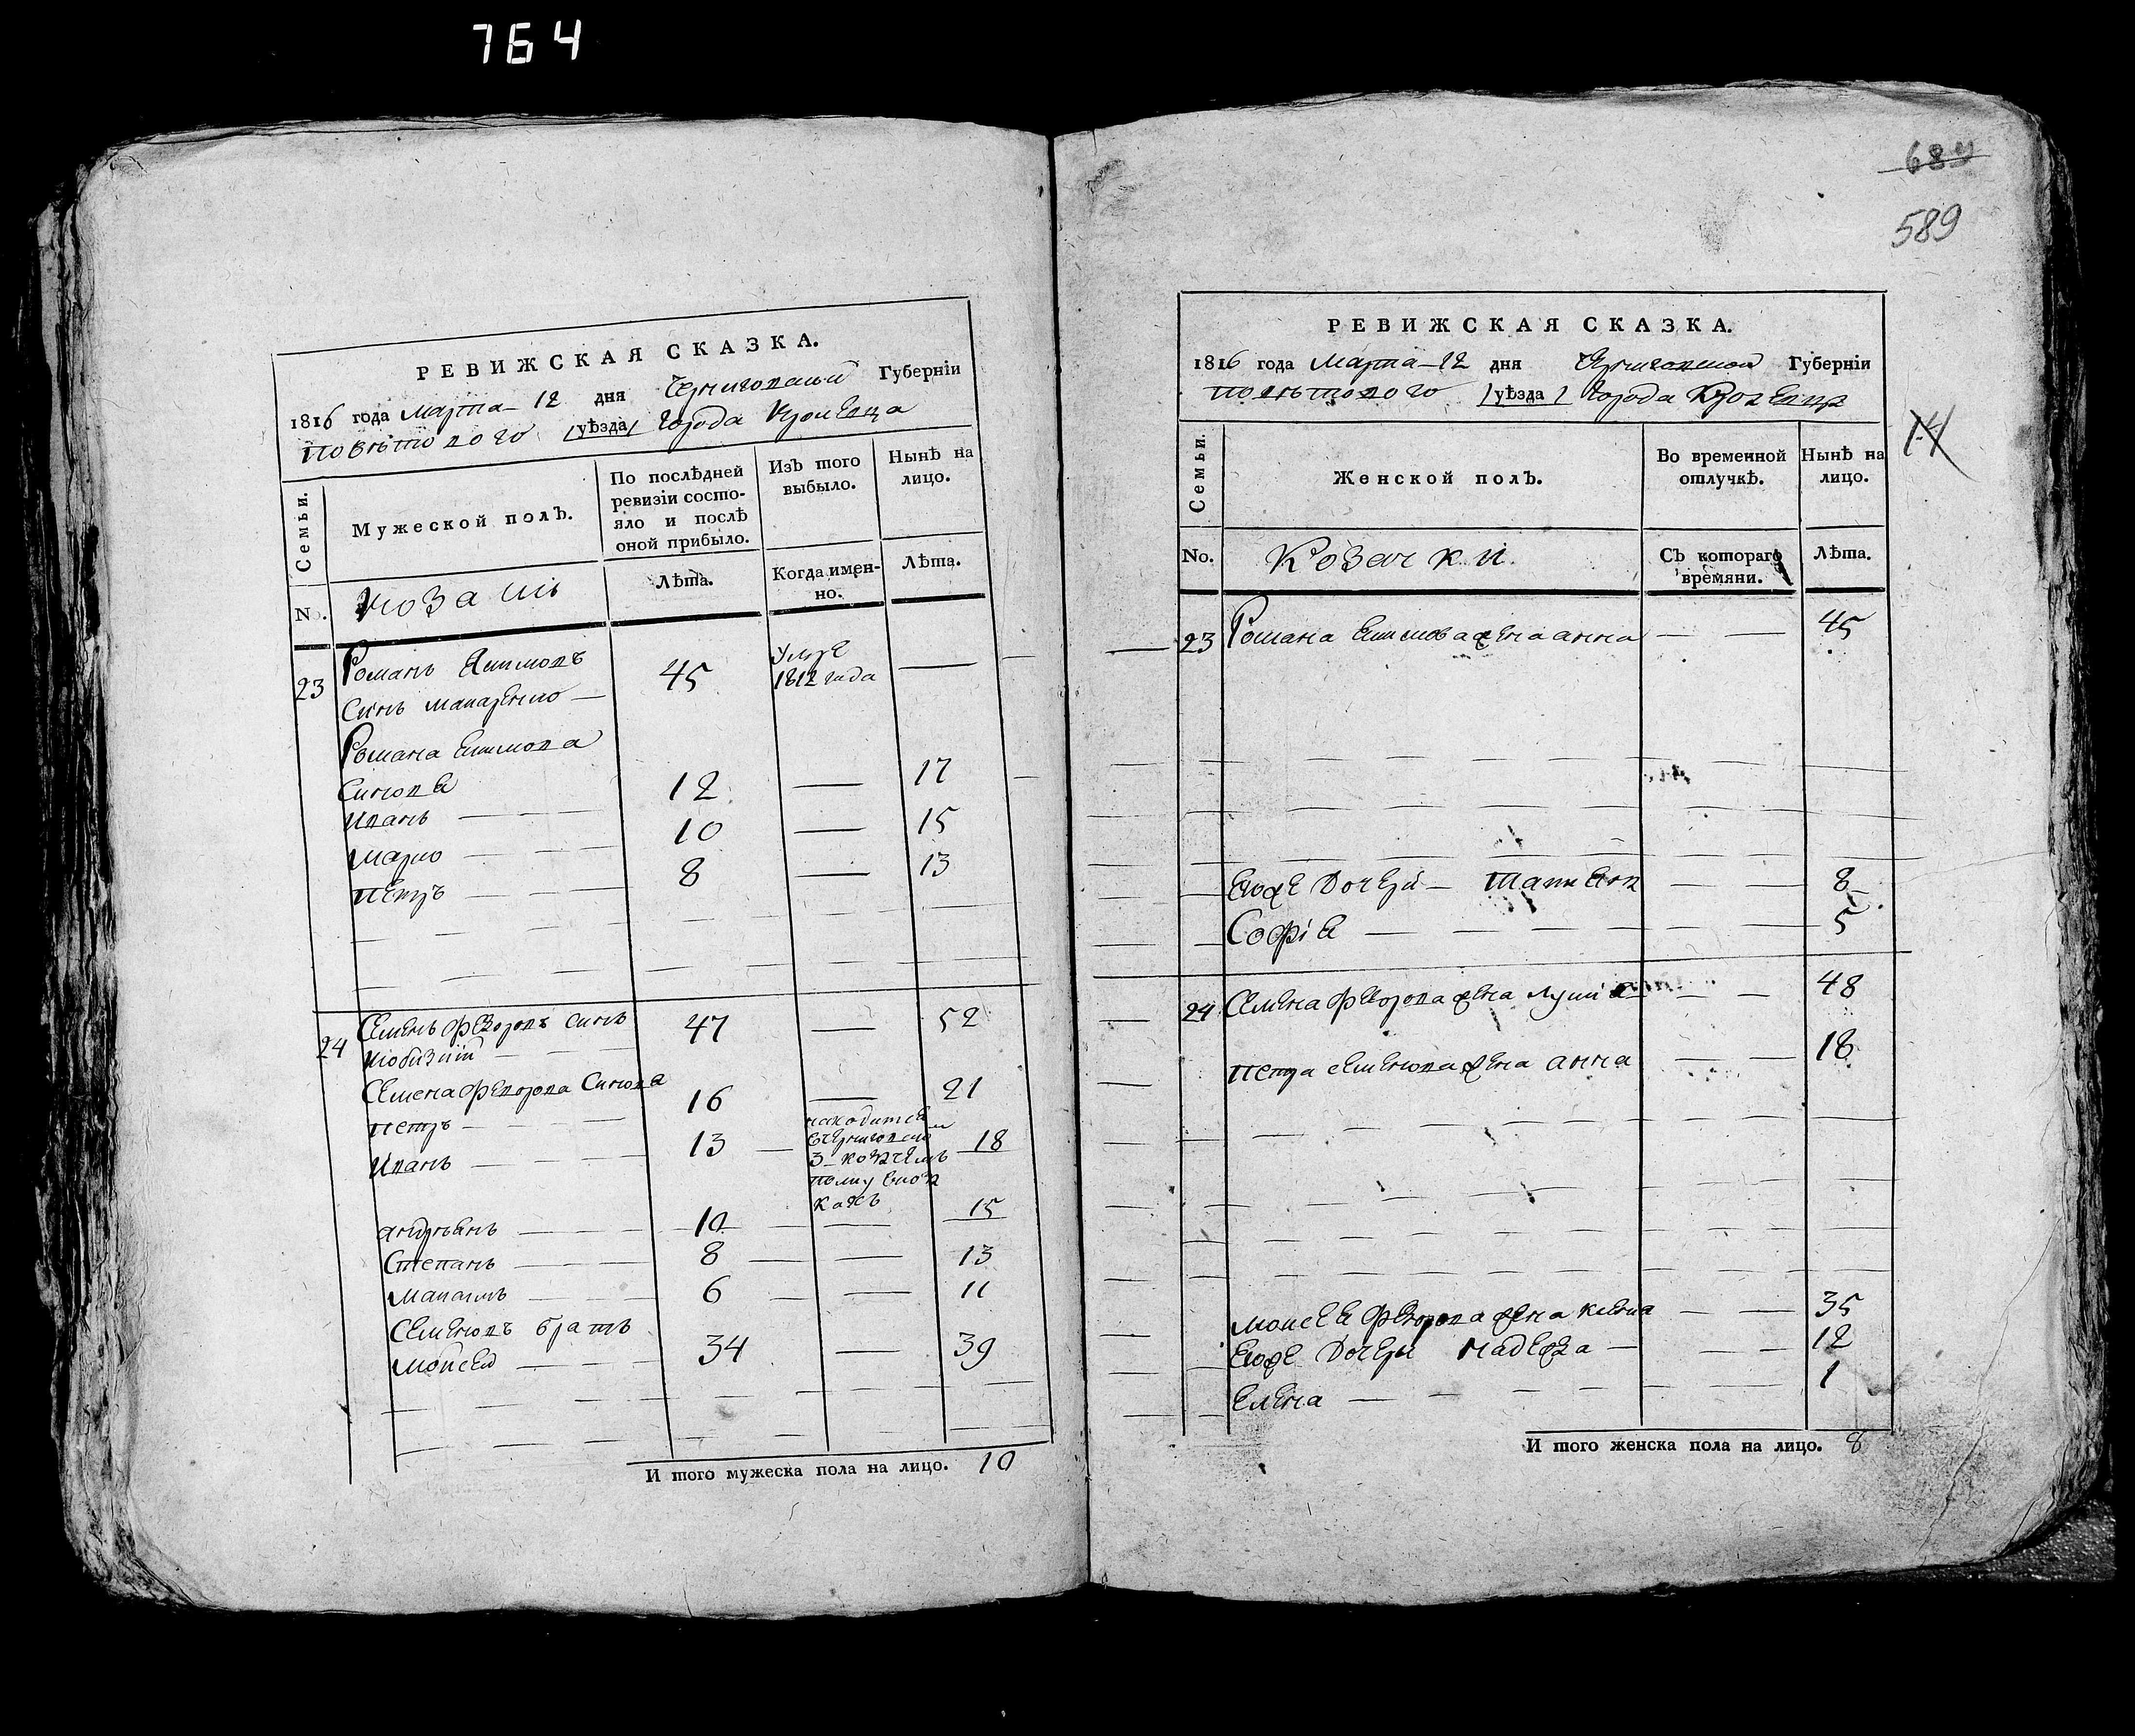 764
РЕВИЖСКАЯ СКАЗКА.
1816 года марта 12 дня Черниговской Губерніи
повѣтового /уѣзда/ города Кролевца
Семьи.
Мужеской полЪ.
По послѣдней ревизіи состо-
яло и послѣ
оной прибыло.
ИзЪ того
выбыло.
НынѢ на
лицо.
No.
козаки
Лѣта.
Когда имен-
но.
Лѣта.
23 Романъ Екимовъ 45 умре —
Синъ макаренко — 1812 года
Романа Екимова
Синови
Иванъ 12 — 17
Марко 10 — 15
Петръ 8 — 13
24 Семенъ Федоровъ синъ 47 — 52
Семена Федорова Синова
Петръ 16 — 21
Иванъ 13 находится 18
3 козачемъ
полку
Андрѣянъ 10 — 15
Степанъ 8 — 13
6 — 11
братъ
Мойсей 34 — 39
И того мужеска пола на лицо. 10
684
589
14
РЕВИЖСКАЯ СКАЗКА.
1816 года Марта 12 дня Черниговской Губерніи
повѣтового /уѣзда/ города Кролевца
Семьи.
Женской полЪ.
Во временной
отлучкѢ.
НынѢ на
лицо.
No.
Козачки
СЪ котораго
времяни.
Лѣта.
23 Романа Екимова жена анна — — 45
Еюже Дочери — татьяна — — 8
Софія — 5
24 Семена Федорова жена — 48
Петра Семенова жена анна — — 18
Мойсея Федорова жена — — 35
Еюже Дочери надежа — 12
Елена — 1
И того женска пола на лицо. 8